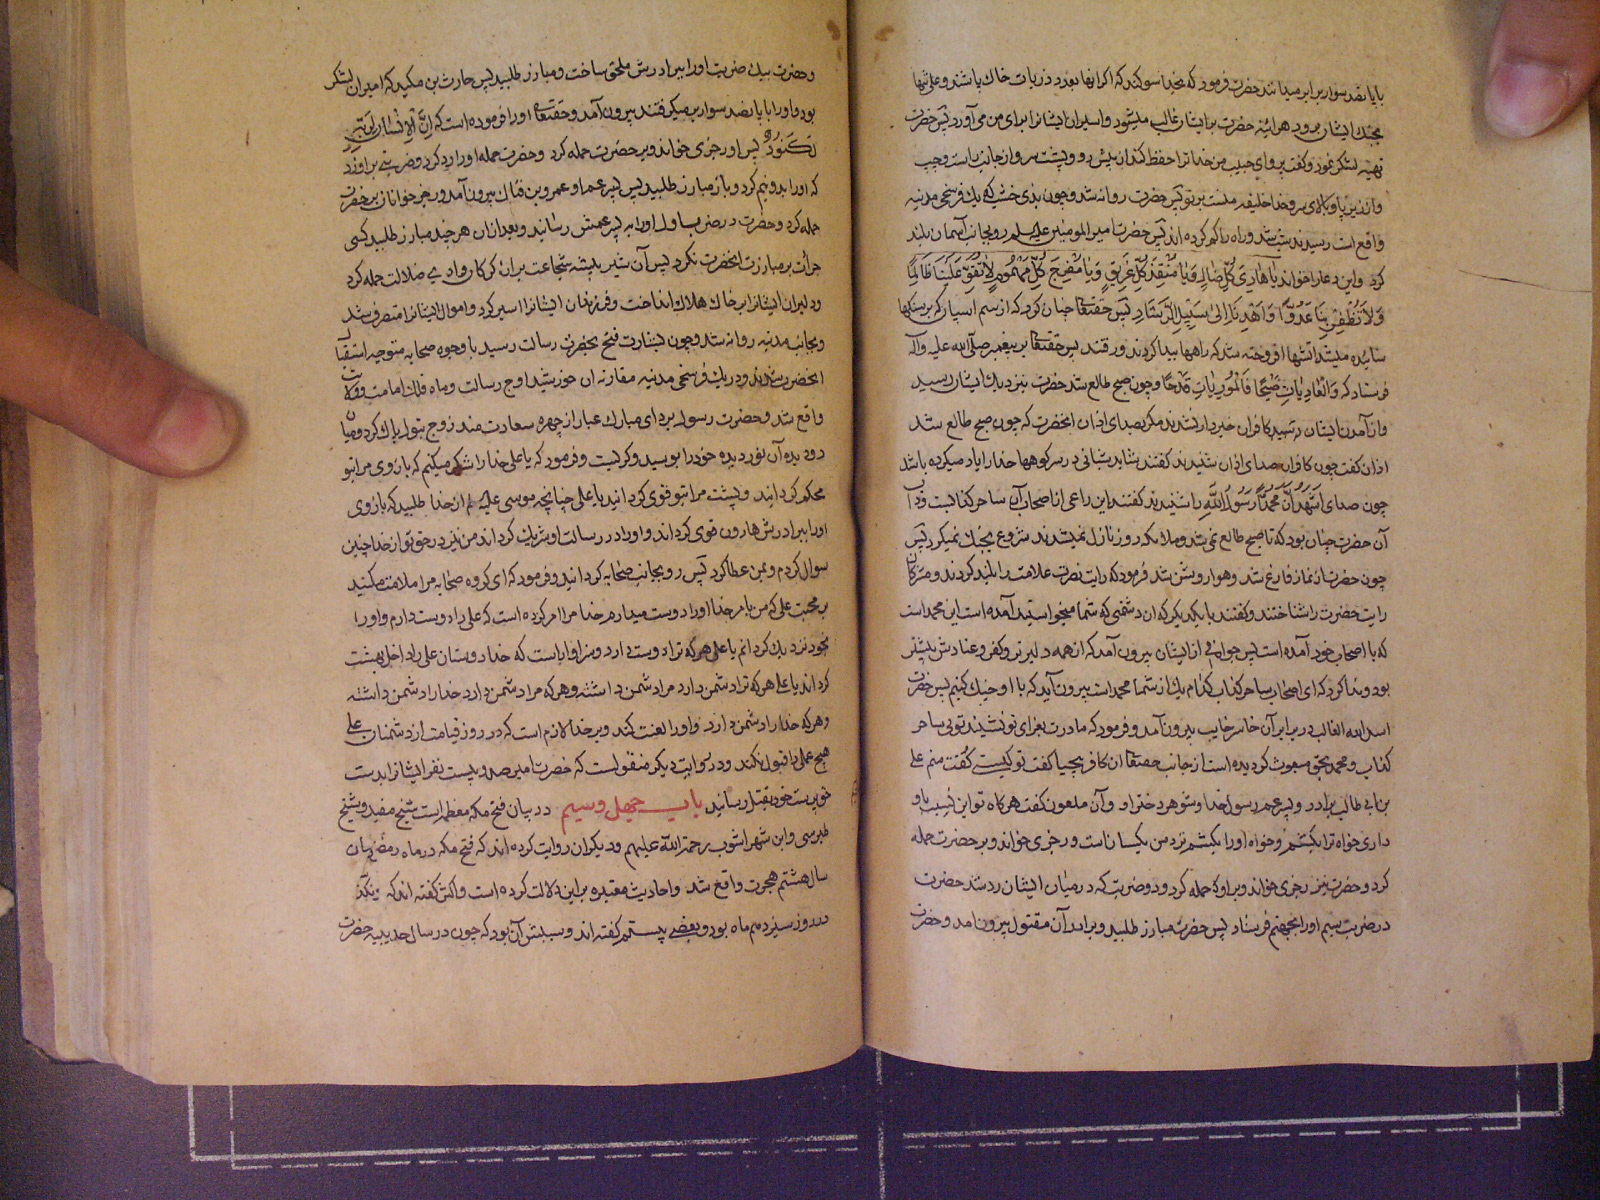 با پانصد سوار برابر میدانند حضرت فرمود که بخدا سوکند که اکر انها بعدد ذریات خاك باشند و علی تنها
بجنك ایشان برود هرآینه حضرت بر ایشان غالب میشود و اسیران ایشانرا برای من می آورد پس حضرت
تهیه لشکر نمود و کفت برو ای حبیب من خدا ترا حفظ کند از پیش رو و پشت سر و از جانب راست و چپ
و از زیر پا و بالای سر و خدا خلیفه منست بر تو پس حضرت روانه شد و چون بذی خشب که یك فرسخی مدینه
واقع است رسیدند شب شد و راه را کم کرده اند پس حضرت امیرالمومنین علیه سلم رو بجانب آسمان بلند
کرد و این دعا را خواند یا هَادِیَ کُلِّ ضَالٍ وَیَا مُنْقِذَ کُلِّ غَرِیقٍ وَیَا مُفَرِّجَ کُلِّ مَهْمُومٍ لَا تُقَوِّ عَلَیْنَا ظَالِمًا
وَلَا تُظْفِرْ بِنَا عَدُوًّا وَاهْدِنَا اِلیٰ سَبِیلِ الرَّشَادِ پس حقتعا چنان کرد که از سم اسبان که بر سنکها
سائیده میشد اتشها افروخته شد که راهها پیدا کردند و رفتند پس حقتعا بر پیغمبر صلّی الله علیه وآله
فرستاد که وَالْعَادِیَاتِ ضَبْحًا فَالْمُورِیَاتِ قَدْحًا و چون صبح طالع شد حضرت بنزدیك ایشان رسید
و از آمدن ایشان کافران خبردار نشدند مکر بصدای اذان انحضرت که چون صبح طالع شد
اذان کفت چون کافران صدای اذان شنیدند کفتند شاید شبانی در سر کوهها خدا را یاد میکرده باشد
چون صدای اَشْهَدُ اَنَّ مُحَمَّدًا رَسُولُ اللهِ را شنیدند کفتند این راعی از اصحاب آن ساحر کذابست و داب
آن حضرت چنان بود که تا صبح طالع نمی شد و ملائکه روز نازل نمیشدند شروع بجنك نمیکرد پس
چون حضرت از نماز فارغ شد و هوا روشن شد فرمود که رایت نصرت علامت را بلند کردند و مشرکان
رایت حضرت را شناختند و کفتند با یکدیکر که ان دشمنی که شما میخواستید آمده است این محمد است
که با اصحاب خود آمده است پس جوانی از ایشان بیرون آمد که از همه دلیرتر و کفر و عنادش بیشتر
بود و ندا کرد که ای اصحاب ساحر کذاب کدام یك از شما محمد است بیرون آید که با او جنك کنیم پس حضرت
اسد الله الغالب در برابر آن خاسر خایب بیرون آمد و فرمود که مادرت بعزای تو نشیند توئی ساحر
کذاب و محمد بحق مبعوث کردیده است از جانب حقتعا ان کافر بیحیا کفت تو کیستی کفت منم علی
بن ابی طالب برادر و پسر عم رسول خدا و شوهر دختر او و آن ملعون کفت هرکاه تو این نسبت باو
داری خواه ترا بکشم و خواه او را بکشم نزد من یکسان است و رجزی خواند و بر حضرت حمله
کرد و حضرت نیز رجزی خواند و بر او حمله کرد و دو ضربت که در میان ایشان رد شد حضرت
در ضربت سیم او را بجهنم فرستاد پس حضرت مبارز طلبید و برادر آن مقتول بیرون امد و حضرت
و حضرت بیك ضربت او را ببرادرش ملحق ساخت و مبارز طلبید پس حارث بن مکیده که امیر ان لشکر
بود و او را با پانصد سوار برابر میکرفتند بیرون آمد و حقتعا در او فرموده است که اِنَّ الْاِنْسَانَ لِرَبِّهِ
لَکَنُودٌ پس او رجزی خواند و بر حضرت حمله کرد و حضرت حمله او را رد کرد و ضربتی بر او زد
که او را بدو نیم کرد و باز مبارز طلبید پس پسر عم او عمرو بن فتاك بیرون آمد و رجز خوانان بر حضرت
حمله کرد و حضرت در ضربت اول او را به پسر عمش رسانید و بعد از ان هر چند مبارز طلبید کسی
جرأت بر مبارزت انحضرت نکرد پس آن شیر بیشه شجاعت بر ان کرکان وادی ضلالت حمله کرد
و دلیران ایشانرا بر خاك هلاك انداخت و فرزندان ایشانرا اسیر کرد و اموال ایشانرا متصرف شد
و بجانب مدینه روانه شد و چون بشارت فتح بحضرت رسالت رسید با وجوه صحابه متوجه استقبال
انحضرت شدند و در یك فرسخی مدینه مقارنه ان خورشید اوج رسالت و ماه فلك امامت و ولایت
واقع شد و حضرت رسول بردای مبارك غبار از چهره سعادت مند زوج بتول پاك کرد و میان
دو دیده آن نور دیده خود را بوسید و کریست و فرمود که یا علی خدا را شکر میکنم که بازوی مرا بتو
محکم کردانید و پشت مرا بتو قوی کردانید یا علی چنانچه موسی علیه سلم از خدا طلبید که بازوی
او را ببرادرش هارون قوی کرداند و او را در رسالت او شریك کرداند من نیز در حق تو از خدا چنین
سوال کردم و بمن عطا کرد پس رو بجانب صحابه کردانید و فرمود که ای کروه صحابه مرا ملامت مکنید
بر محبت علی که من بامر خدا او را دوست میدارم خدا مرا امر کرده است که علی را دوست دارم و او را
بخود نزدیك کردانم یا علی هر که ترا دوست دارد سزاوار است که خدا دوستان علی را داخل بهشت
کرداند یا علی هر که ترا دشمن دارد مرا دشمن داشته و هر که مرا دشمن دارد خدا را دشمن داشته
و هر که خدا را دشمن دارد او را لعنت کند و بر خدا لازم است که در روز قیامت از دشمنان علی
هیچ عملی را قبول نکند و در روایت دیکر منقولست که حضرت امیر صد و بیست نفر ایشانرا بدست
خود بقتل رسانید باب چهل و سیم در بیان فتح مکه معظمه است شیخ مفید و شیخ
طبرسی و ابن شهر اشوب رحمة الله علیهم و دیکران روایت کرده اند که فتح مکه در ماه رمضان
سال هشتم هجرت واقع شد و احادیث معتبره بر این دلالت کرده است و اکثر کفته اند که
در روز سیزدهم ماه بود و بعضی بیستم کفته اند و سببش آن بود که چون در سال حدیبیه حضرت